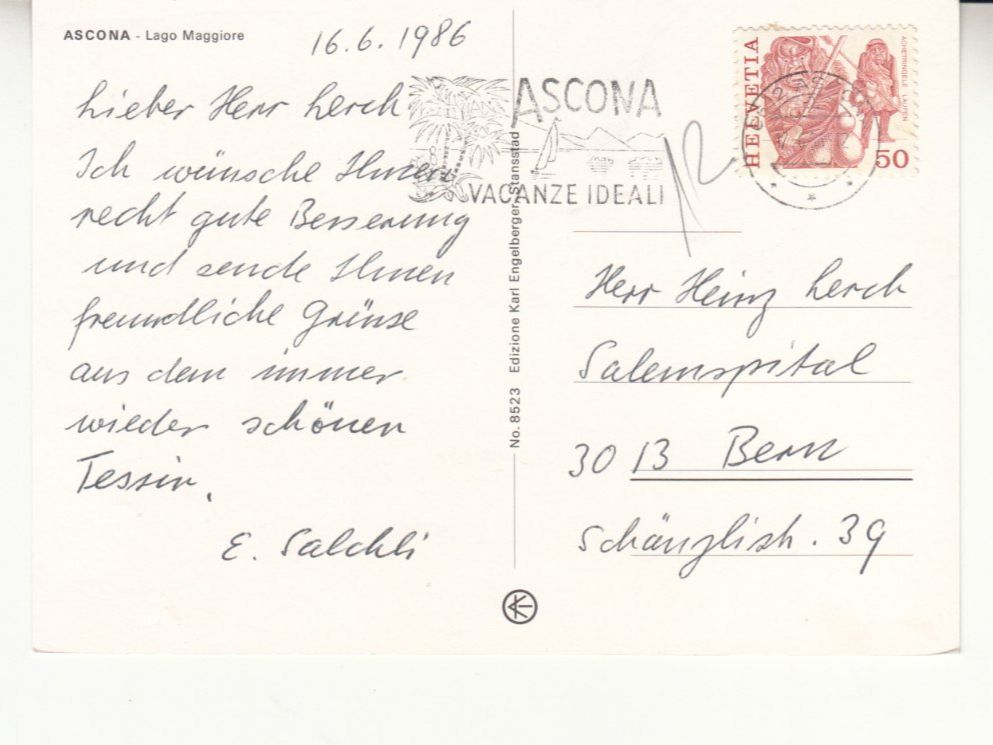 ASCONA - Lago Maggiore
16.6.1986
Lieber Herr Lerch
Ich wünsche Ihnen
recht gute Besserung
und sende Ihnen
freundliche Grüsse
aus dem immer
wieder schönen
Tessin.
E. Salchli
No. 8523 Edizione Karl Engelberger, Stansstad
ASCONA
VACANZE IDEALI
HELVETIA
ACHETRINGELE LAUPEN
50
Herr Heinz Lerch
Salemspital
3013 Bern
Schänzlistr. 39